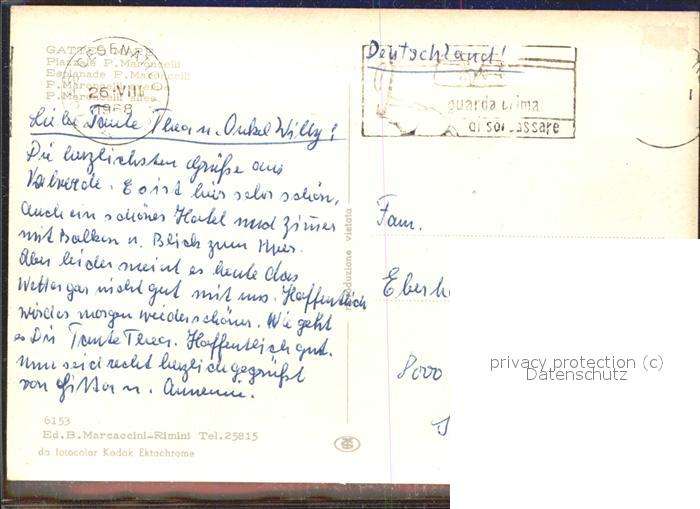 Deutschland!
GATTEO MARE
Piazzale P. Marcucelli
Esplanade P. Marcucelli
26·VIII
1968
guarda prima
di sorpassare
Liebe Tante Thea u. Onkel Willy!
Die herzlichsten Grüße aus
Valverde. Es ist hier sehr schön,
auch ein schönes Hotel und Zimmer
mit Balkon u. Blick zum Meer.
Aber leider meint es heute das
Wetter gar nicht gut mit uns. Hoffentlich
wird es morgen wieder schöner. Wie geht
es Dir Tante Thea. Hoffentlich gut.
Nun seid recht herzlich gegrüßt
von Gitta u. Annemie.
riproduzione vietata
Fam.
Eberh
8000
privacy protection (c)
Datenschutz
6153
Ed. B. Marcaccini-Rimini Tel. 25815
da fotocolor Kodak Ektachrome